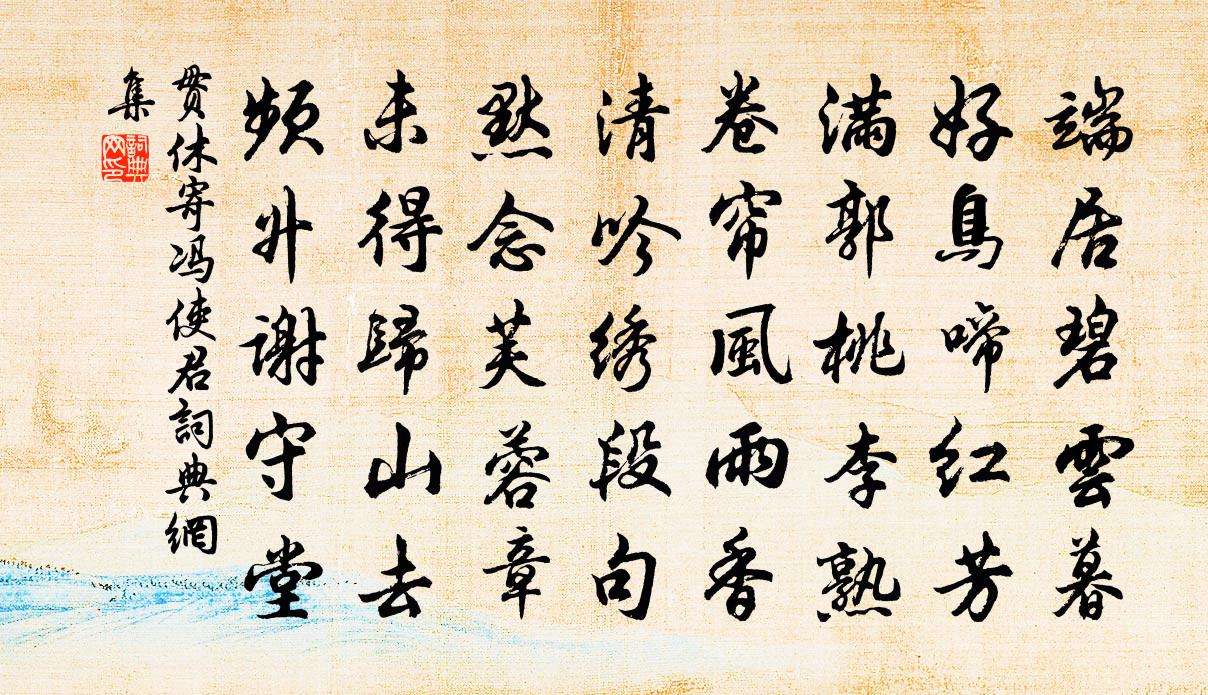 端居碧雲暮
好鳥啼紅芳
滿郭桃李熟
卷帘風雨香
清吟綉段句
默念芙蓉章
未得歸山去
頻升謝守堂
貫休寄馮使君詞典網
集
詞典網印